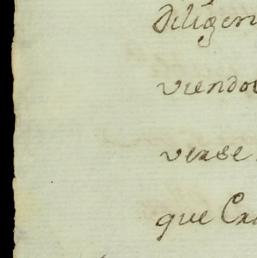 diligen
viendo
verse
que Cr